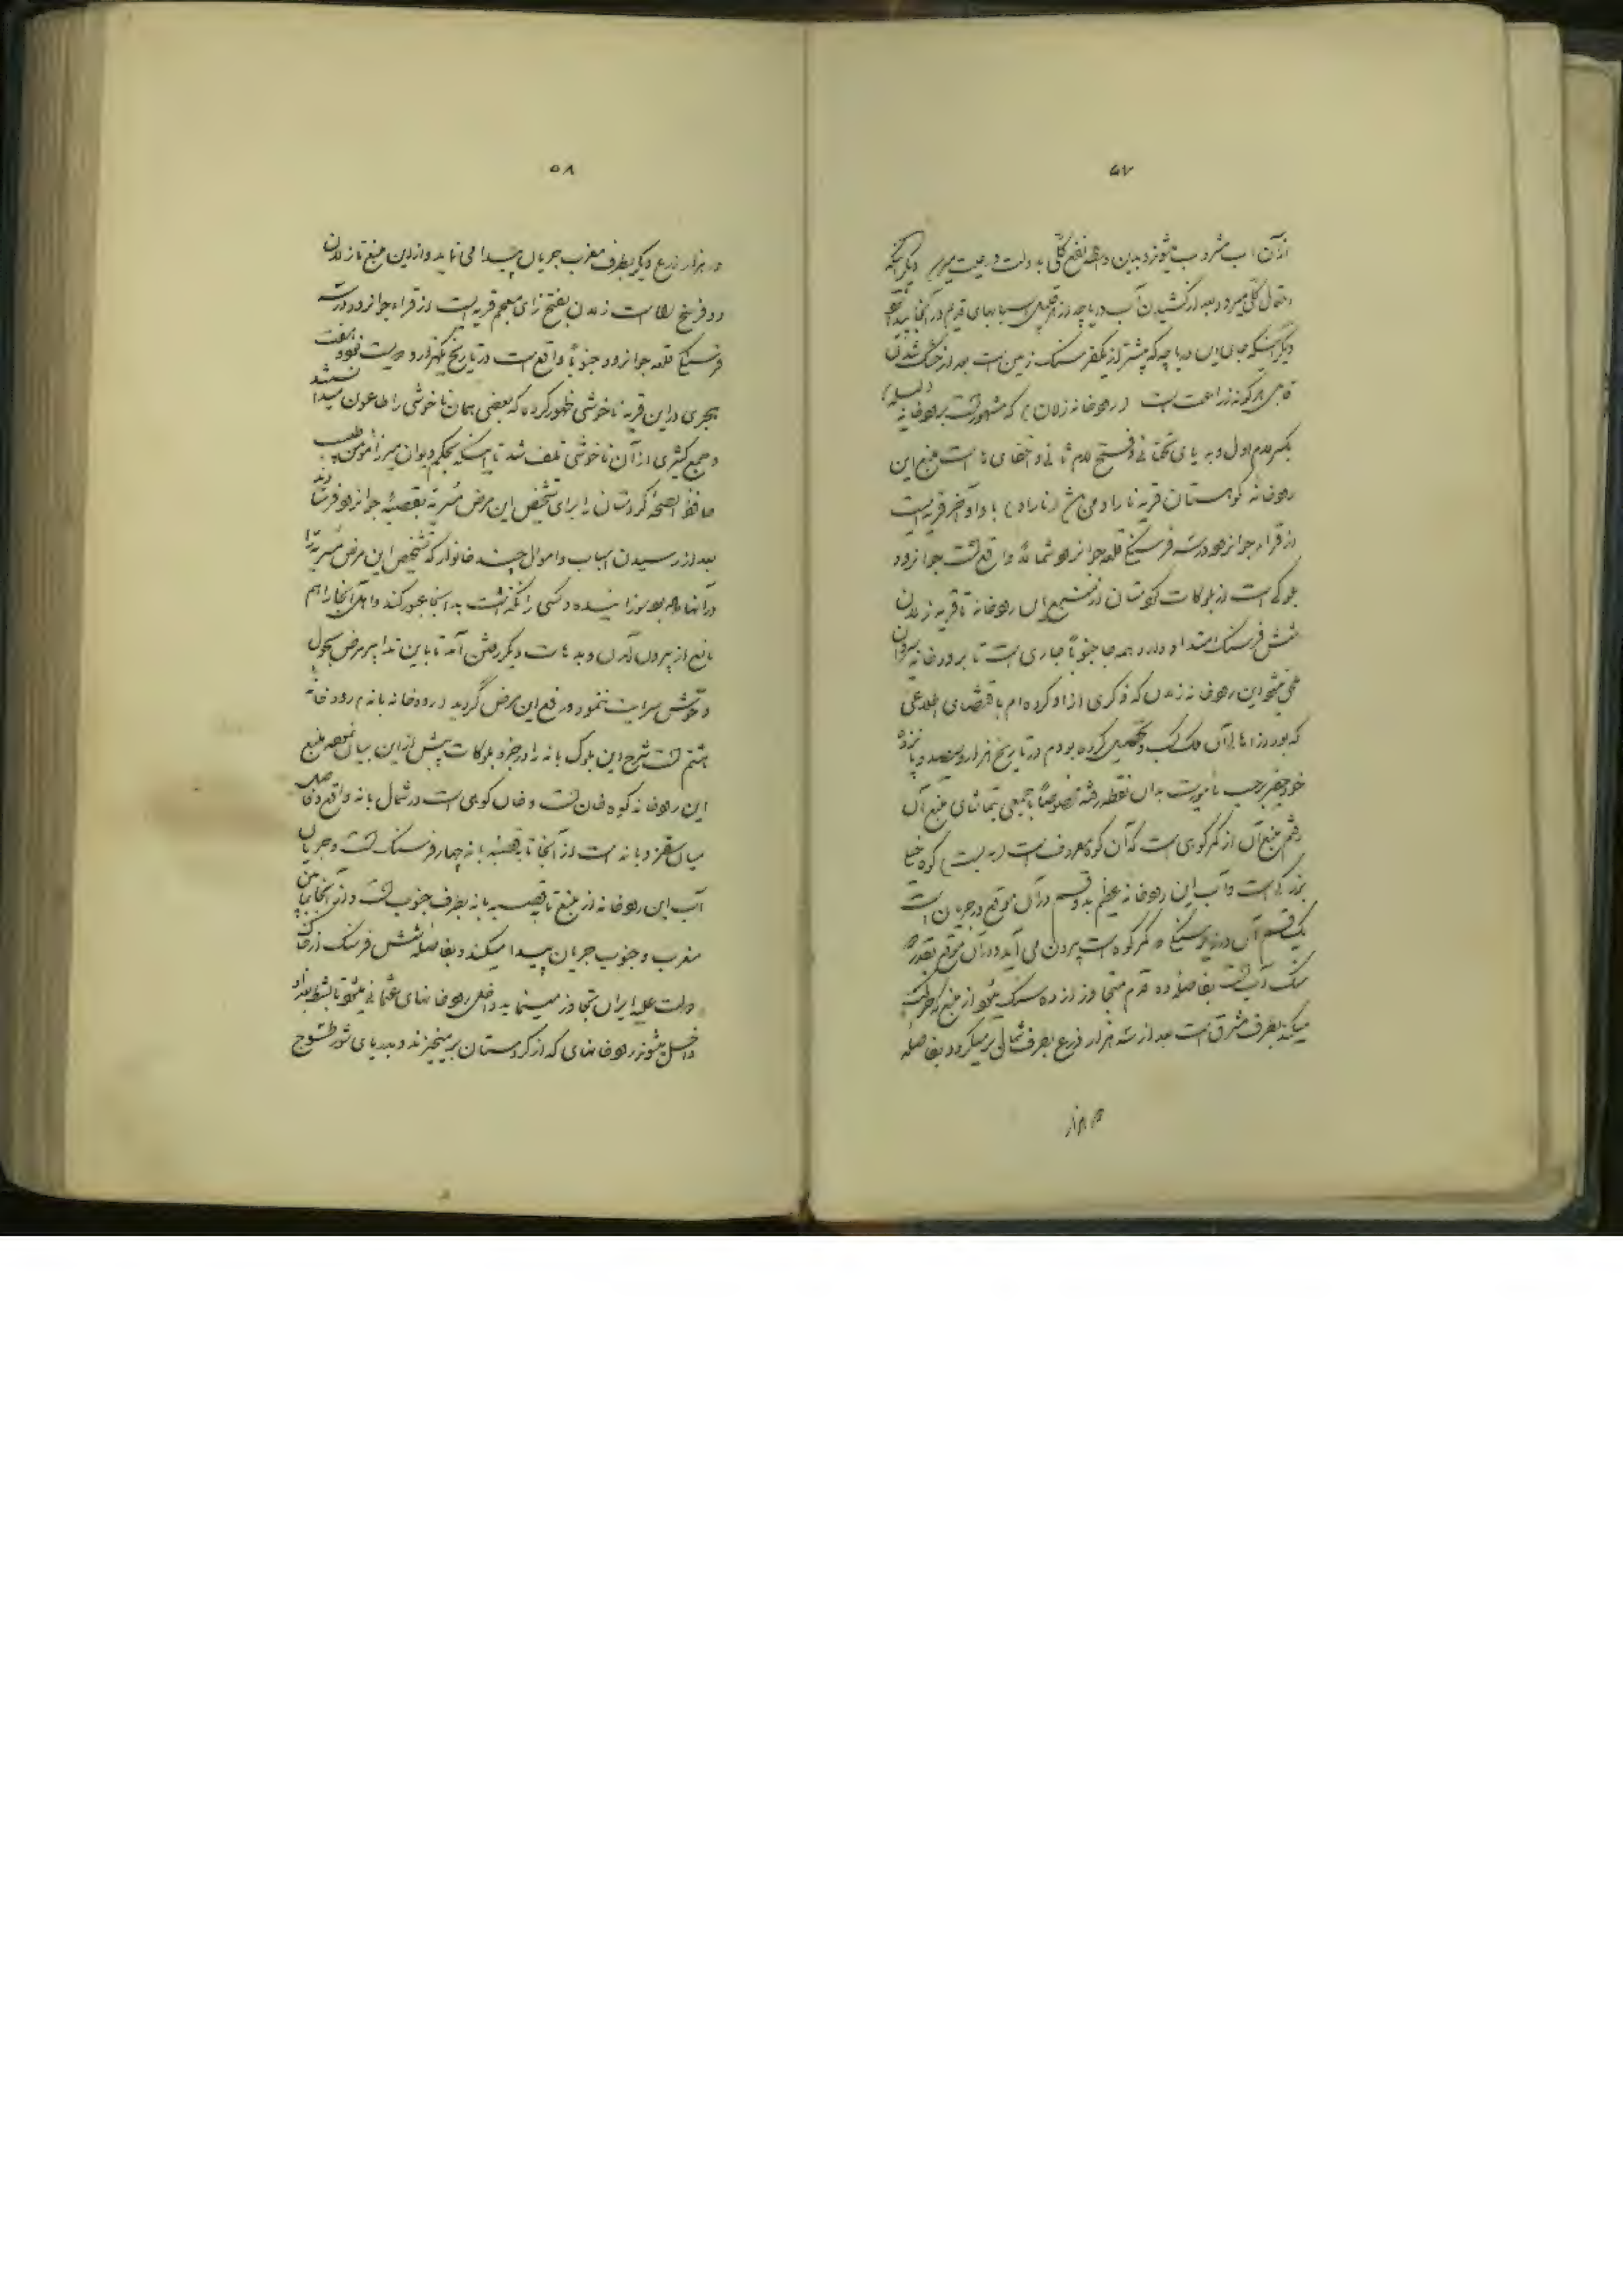 ۵۷
از آن آب مشروب میشوند و بدین واسطه نفع کلی به دولت و رعیت میرسد دیگر آنکه
احتمال کلی میرود بعد از کشیدن آب دریاچه از قبیل اسبابهای قدیم در آنجا پیدا شود
دیگر آنکه جای این دریاچه که بیشتر از یکفرسنگ زمین است بعد از خشک شدن
قابل هرگونه زراعت است (رودخانه زلان) که مشهور است برودخانه (لیله)
بکسر لام اول و به یای تحتانی و فتح لام ثانی و اخفای ها است منبع این
رودخانه کوهستان قریه نارا و من (نارا و) با واو آخر قریه ایست
از قراء جوانرود در سه فرسنگی قلعه جوانرود شمالاً واقع است جوانرود
بلوکی است از بلوکات کردستان از منبع این رودخانه تا قریه زلان
شش فرسنگ امتداد دارد و همه جا جنوباً جاری است تا برودخانه سیروان
ملحق میشود این رودخانه زلان که ذکری از او کرده ام باقتضای اطلاعی
که بود از اهالی آن ملک کسب و تحصیل کرده بودم در تاریخ هزار و سیصد و پانزده
خود حقیر برحسب مأموریت بدان نقطه رفته مخصوصاً با جمعی بتماشای منبع آن
رفتم منبع آن از کمر کوهی است که آن کوه معروف است ( ) کوه خیلی
بزرگی است و آب این رودخانه عظیم بدو قسم در آن موقع در جریان است
یک قسم آن در زیر سنگی در کمر کوه است بیرون می آید و در آن موقع بقدر ده
سنگ آب است بفاصله ده قدم متجاوز از ده سنگ میشود از منبع که حرکت
میکند بطرف مشرق است بعد از سه هزار ذرع بطرف شمالی برمیگردد بفاصله
دو هزار
۵۸
دو هزار ذرع دیگر بطرف مغرب جریان پیدا می نماید و از این منبع تا زلان
دو فرسخ راه است زلان بفتح زای معجم قریه ایست از قراء جوانرود در سه
فرسنگی قلعه جوانرود جنوباً واقع است در تاریخ یکهزار و دویست نود و هفت
هجری در این قریه ناخوشی ظهور کرده که بعضی همان ناخوشی را طاعون میدانستند
و جمع کثیری از آن ناخوشی تلف شد تا اینکه بحکم دیوان میرزا مؤمن طبیب
حافظ الصحه کردستان را برای تشخیص این مرض مسریه بقصبه جوانرود فرستادند
بعد از رسیدن اسباب و اموال چند خانوار که تشخیص این مرض مسریه را
در آنها داده بود سوزانیده و کسی را نگذاشت به آنجا عبور کند و اهل آنجا را هم
مانع از بیرون آمدن و بدهات دیگر رفتن آمد تا باین تدابیر مرض بحول
و حوش سرایت ننمود و رفع این مرض گردید (رودخانه بانه) رودخانه
هشتم است شرح این بلوک بانه را در جزو بلوکات پیش از این بیان نموده منبع
این رودخانه کوه خان است و خان کوهی است در شمال بانه واقع و فاصله
میان سقز و بانه است از آنجا تا قصبه بانه چهار فرسنگ است و جریان
آب این رودخانه از منبع تا قصبه بانه بطرف جنوب است و از آنجا مابین
مغرب و جنوب جریان پیدا میکند و بفاصله شش فرسنگ از خاک
دولت علیه ایران تجاوز مینماید داخل رودخانهای عثمانی میشود تا بشط بغداد
داخل میشود رودخانهای که از کردستان برمیخیزند و بدریای شور